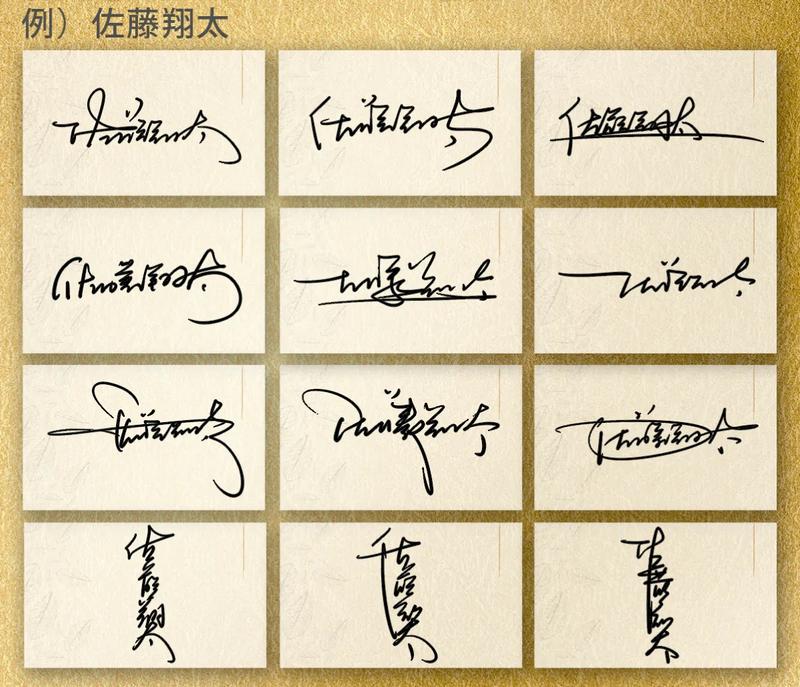 例） 佐藤翔太
佐藤翔太
佐藤翔太
佐藤翔太
佐藤翔太
佐藤翔太
佐藤翔太
佐藤翔太
佐藤翔太
佐藤翔太
佐藤翔太
佐藤翔太
佐藤翔太